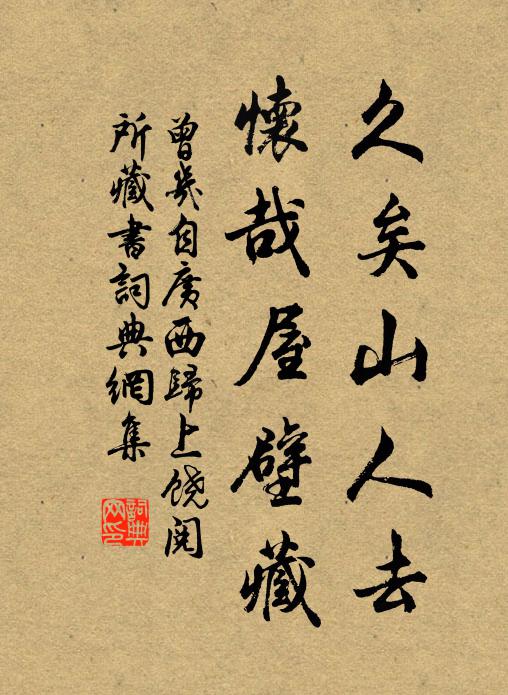 久矣山人去
懷哉屋壁藏
曾幾自廣西歸上饒閱
所藏書詞典網集
詞典
網印